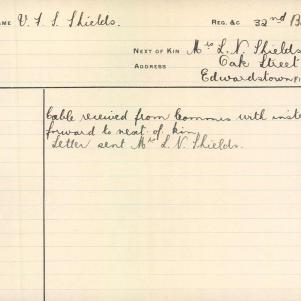 AME V. L. S. Shields. REG. &C 32nd B
NEXT OF KIN Mrs L. N. Shields
ADDRESS Oak Street
Edwardstown
Cable received from Commns with inst
forward to next of kin
Letter sent Mrs L. N. Shields.